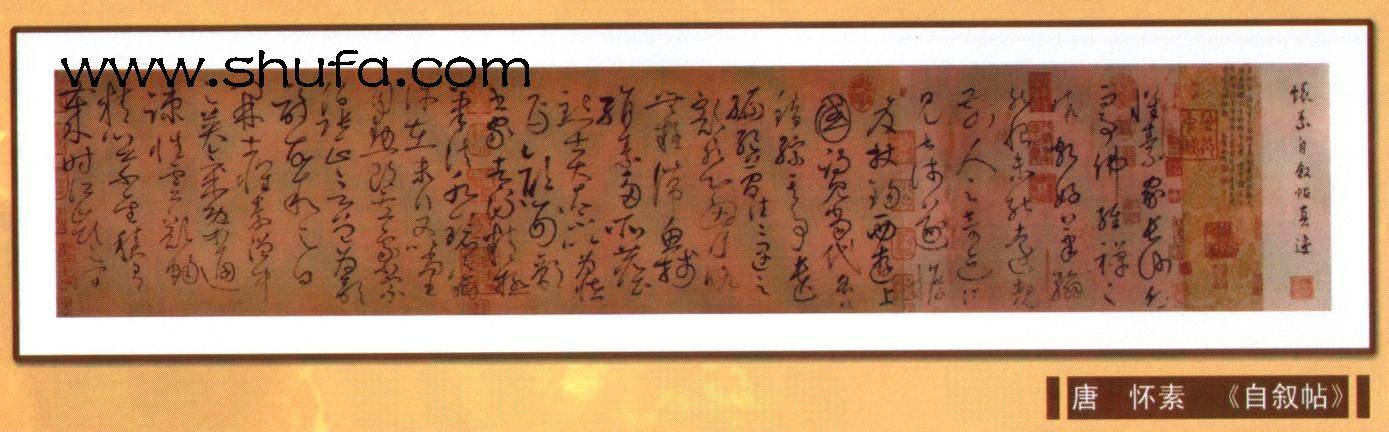 www.shufa.com
懷素自敘帖真迹
懷素家長沙幼而
事佛經禪之
暇頗好筆翰
然恨未能遠覩
前人之奇迹所
見甚淺遂擔
笈杖錫西遊上
國謁見當代名公
錯綜其事遺
編絕簡往往遇之
豁然心胸略
無疑滯魚牋
絹素多所塵
點士大夫不以為怪
焉顏刑部
書家者流精極
筆法水鏡之辯
許在末行又以尚書
司勳郎盧象小宗
伯張正言曾為歌
詩故敘之曰
開士懷素僧中之
英氣概通
疎性靈豁暢
精心草聖積有
歲時江嶺之間
唐 怀素 《自叙帖》